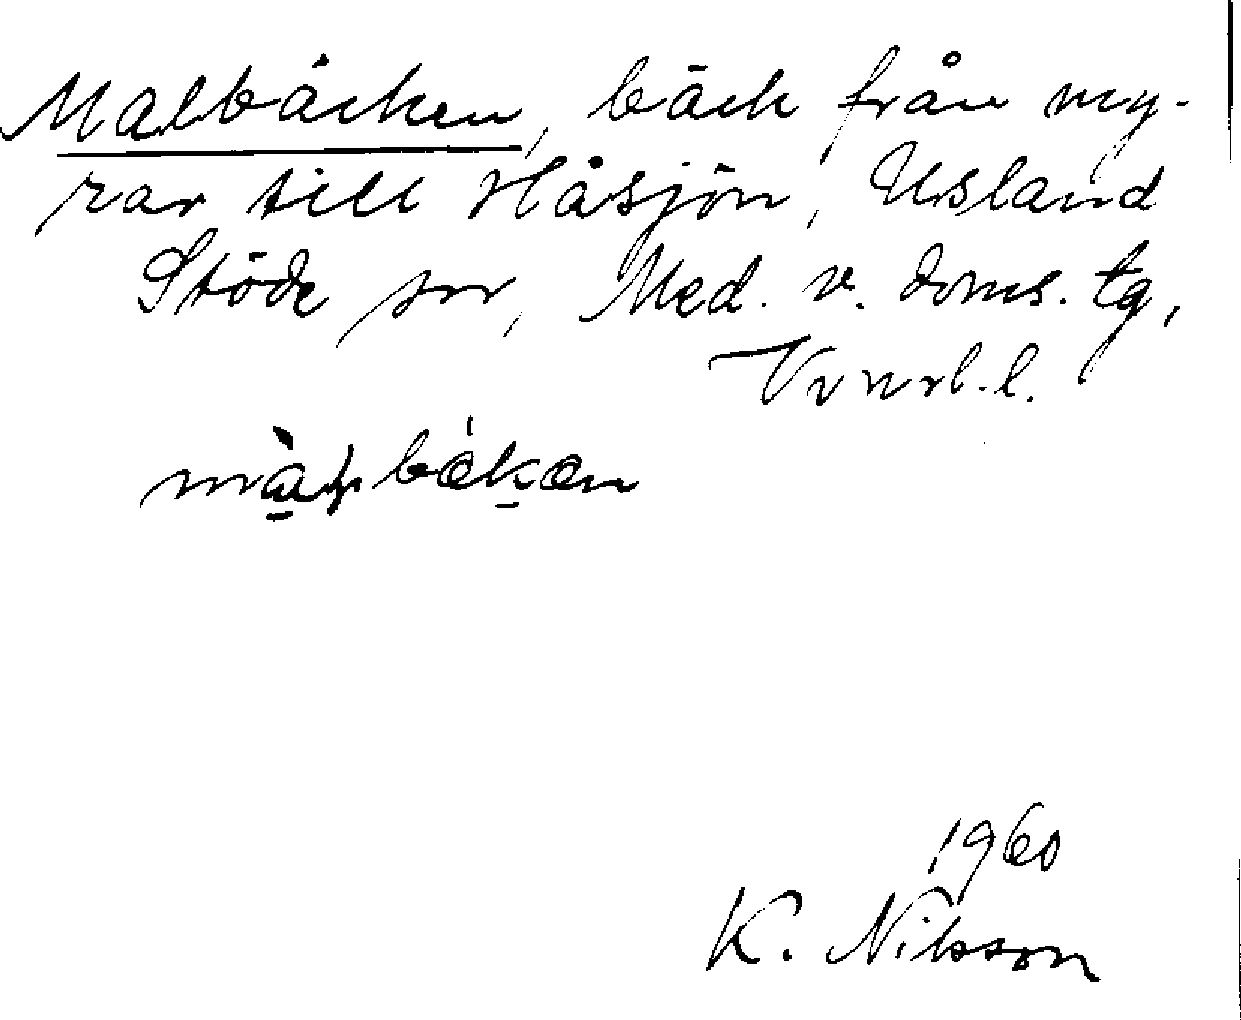 Malbäcken, bäck från my-
rar till Håsjön, Usland
Stöde sn, Med. v. doms. tg,
Vnrl. l.
1960
K. Nilsson